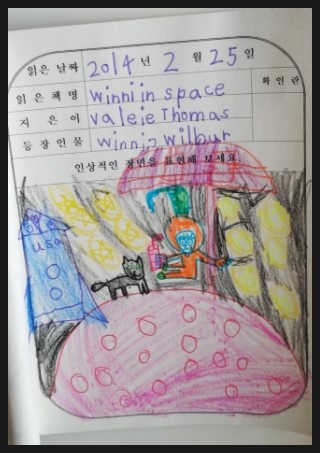 읽은 날짜 2014 년 2 월 25 일
읽은 책명 winni in space 확인란
지은이 valeie Thomas
등장인물 winnie wilbur
인상적인 장면을 표현해 보세요.
usa